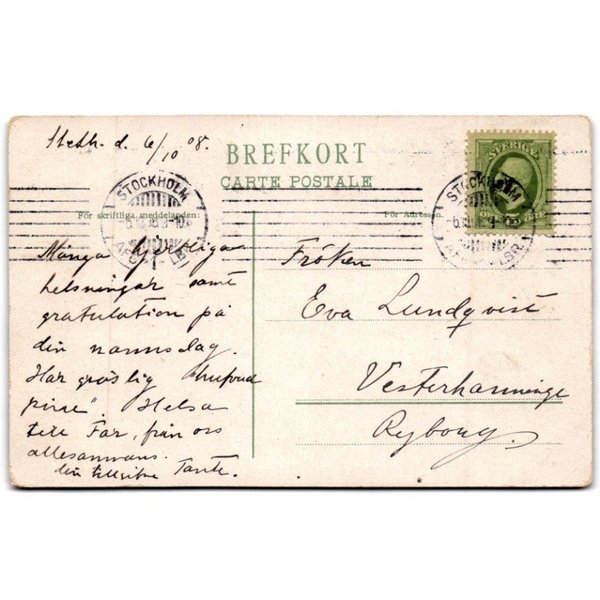 Stchh. d. 6/10 08.
BREFKORT
CARTE POSTALE
SVERIGE
STOCKHOLM
STOCKHOLM
För skriftliga meddelanden:
För Adressen.
Många hjertliga
helsningar samt
gratulation på
din namnsdag.
Har gräslig "hufvud
pina". Helsa
till Far, från oss
allesamans.
din tillgifne Tante.
Fröken
Eva Lundqvist
Vesterhanninge
Ryborg.